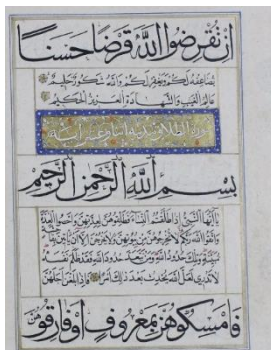 ان تقرضوا الله قرضا حسنا
يضاعفه لكم ويغفر لكم والله شكور حليم
عالم الغيب والشهادة العزيز الحكيم
سورة الطلاق مدنية اثنتا عشر اية
بسم الله الرحمن الرحيم
يا ايها النبي اذا طلقتم النساء فطلقوهن لعدتهن واحصوا العدة
واتقوا الله ربكم لا تخرجوهن من بيوتهن ولا يخرجن الا ان ياتين بفاحشة
مبينة وتلك حدود الله ومن يتعد حدود الله فقد ظلم نفسه
لا تدري لعل الله يحدث بعد ذلك امرا فاذا بلغن اجلهن
فامسكوهن بمعروف او فارقوهن